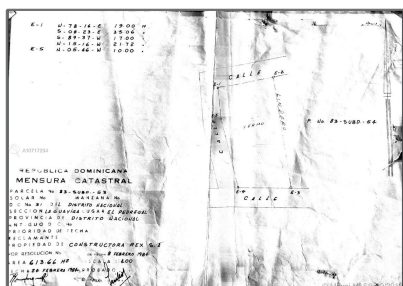 E-1 N-78-16-E 19.00 M
S-08-23-E 35.06 "
S-89-37-W 17.00 "
N-15-16-W 21.72 "
E-5 N-05-46-W 10.00 "
CALLE E-2
CALLE
YERMO
LINDERO
P. No. 83-SUBD.-64
E-4 E-3
CALLE
REPUBLICA DOMINICANA
MENSURA CATASTRAL
PARCELA No 83-SUBD.-63
SOLAR No MANZANA No
D C No 31 DEL DISTRITO NACIONAL
SECCION LA GUAYIGA LUGAR EL PEDREGAL
PROVINCIA DE DISTRITO NACIONAL
ANTIGUO D.C. No
PRIORIDAD DE FECHA
RECLAMANTE
PROPIEDAD DE CONSTRUCTORA MEX
POR RESOLUCION No 8 FEBRERO 1984
AREA 613.66 M2 ESCALA 1:200
FECHA 24 FEBRERO 1984 APROBADO